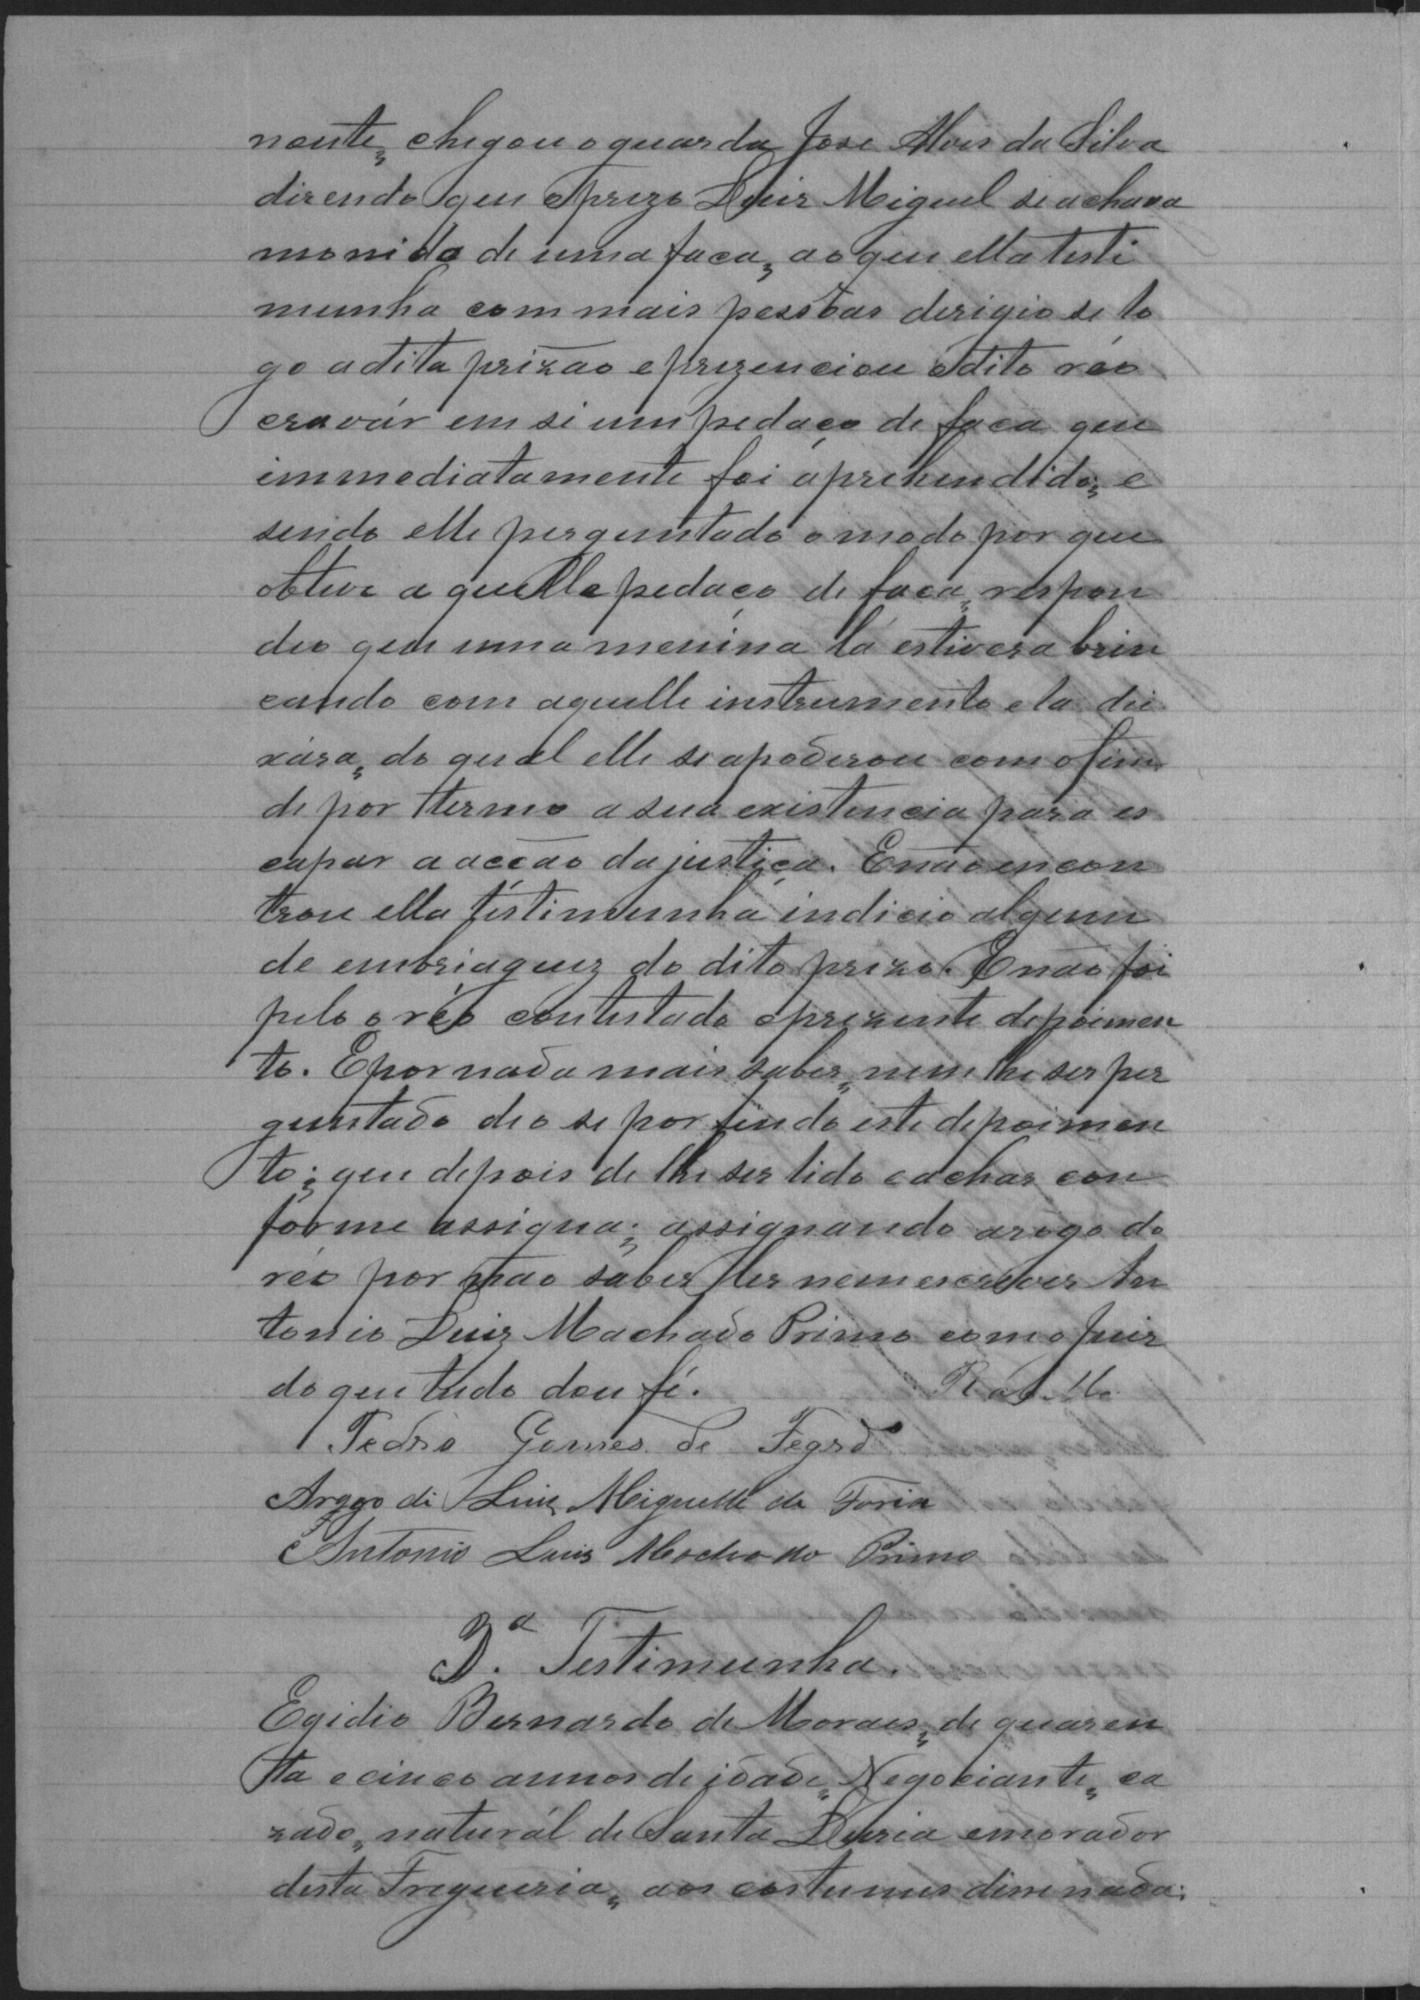 nente, chegou o guarda Jose Alves da Silva
dizendo que o prezo Luiz Miguel se achava
monido de uma faca, ao que ella testi
munha com mais pessoas derigio se lo
go a dita prizão e prezenciou o dito réo
cravár em si um pedaço de faca que
immediatamente foi aprehendido, e
sendo elle perguntado o modo por que
obteve aquelle pedaço de faca, respon
deo que uma menina lá estivera brin
cando com aquelle instrumento e la dei
xára, do qual elle se apoderou com o fim
de por termo a sua existencia para es
capar a acção da justiça. E não encon
trou ella testimunha indicio algum
de embriaguez do dito prezo. E não foi
pelo o réo contestado o prezente depoimen
to. E por nada mais saber, nem lhe ser per
guntado deo se por findo este depoimen
to; que depois de lhe ser lido e achar con
forme assigna; assignando arogo do
réo por não saber ller nem escrever An
tonio Luiz Machado Primo com o Juiz
do que tudo dou fé.
Pedro Gomes de
Arogo di Luiz Miguelle de Faria
Antonio Luis Machado Primo
3ª Testimunha.
Egidio Bernardo de Moraes, de quaren
ta e cinco annos de idade, Negociante, ca
zado, naturál de Santa Luzia e morador
desta Freguezia, aos costumes disse nada;